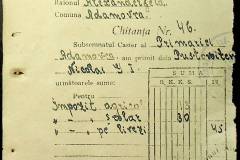 Raionul Alexandreni
Comuna Adamovca
Chitanța Nr. 46.
Subsemnatul Casier al Primariei
Adamovca am primit dela
Nicolai S I
următoarele sume:
SUMA
Pentru
Impozit agricol
" școlar 30
" pe livezi 45